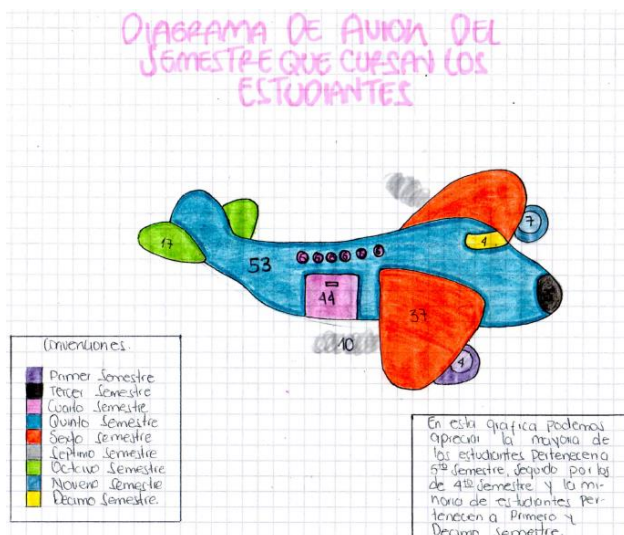 DIAGRAMA DE AVION DEL
SEMESTRE QUE CURSAN LOS
ESTUDIANTES
7
4
17
53
44
37
10
4
Convenciones.
Primer Semestre
Tercer Semestre
Cuarto Semestre
Quinto Semestre
Sexto Semestre
Septimo Semestre
Octavo Semestre
Noveno Semestre
Decimo Semestre.
En esta grafica podemos
apreciar la mayoria de
los estudiantes pertenecen a
5to Semestre, seguido por los
de 4to Semestre y la mi-
noria de estudiantes per-
tenecen a Primero y
Decimo Semestre.